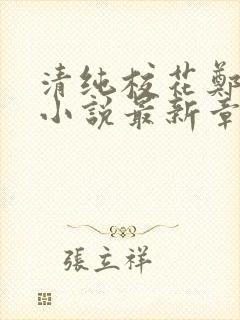 清纯校花鄭
小說最新章
張立祥